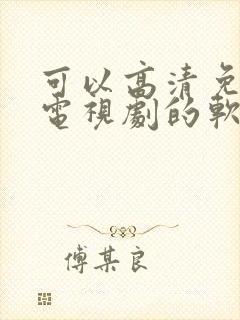 可以高清免
電視劇的軟
傅某良